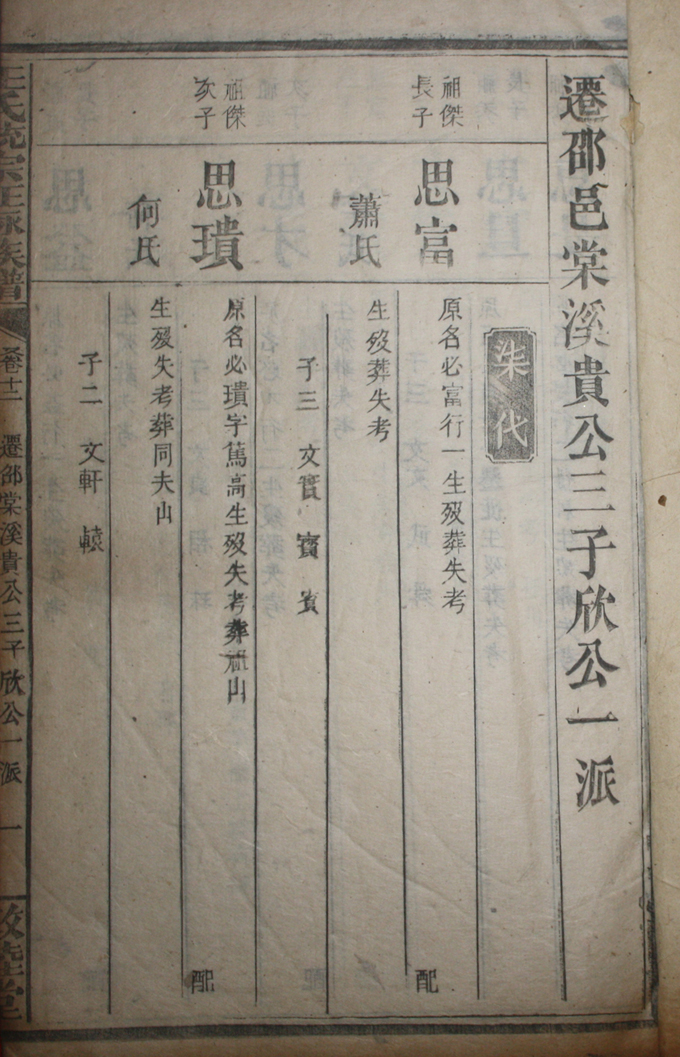 遷邵邑棠溪貴公三子欣公一派
柒代
祖傑
長子
思富
原名必富行一生歿葬失考
配
蕭氏
生歿葬失考
子三 文 寳 賓
祖傑
次子
思璝
原名必璝字篤高生歿失考葬祖山
配
何氏
生歿失考葬同夫山
子二 文軒 轅
氏統宗正脉族譜
卷十二
遷邵棠溪貴公三子欣公一派
一
敦睦堂